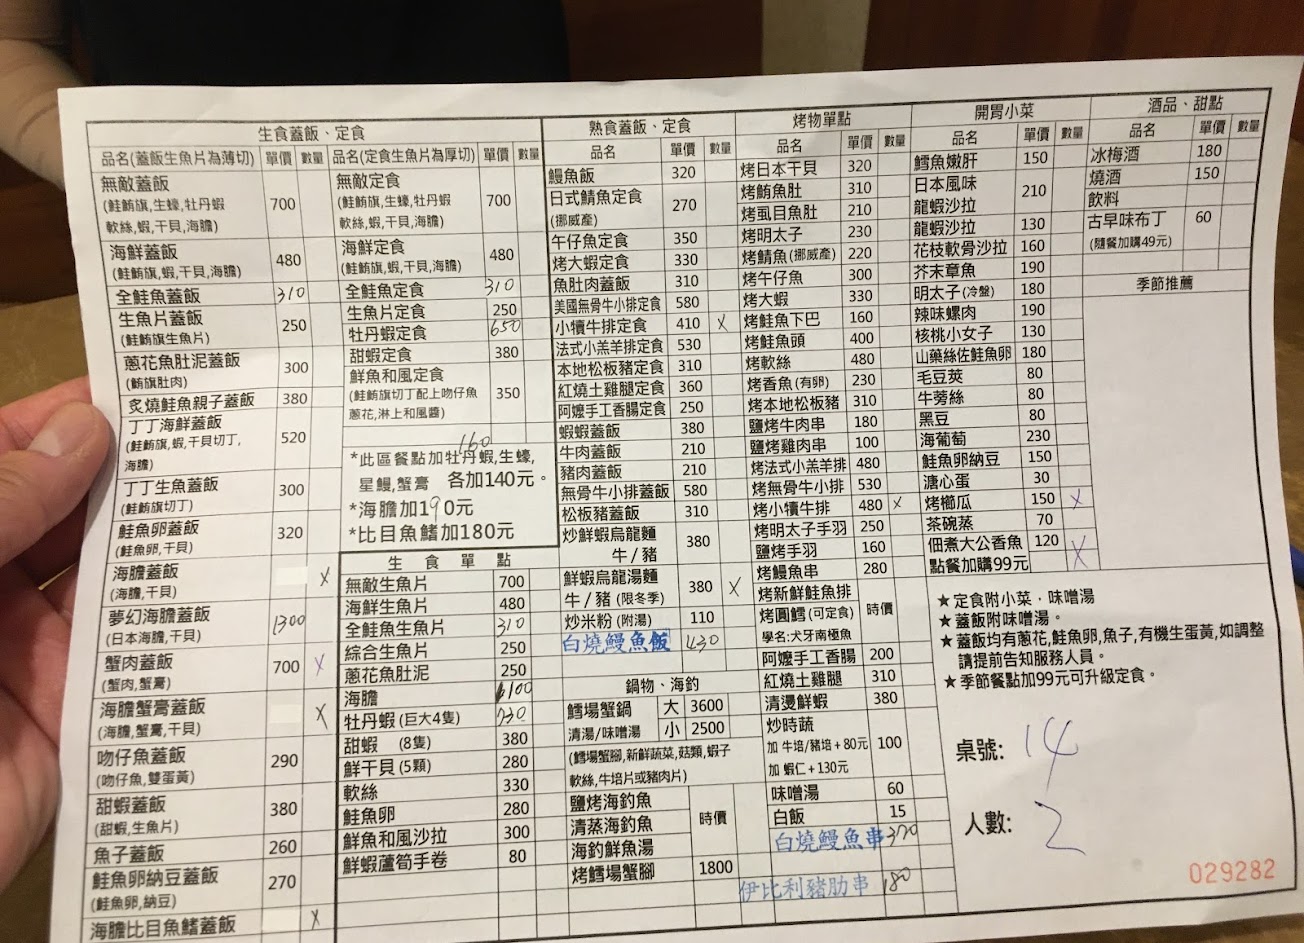 生食蓋飯、定食
品名(蓋飯生魚片為薄切) 單價 數量
無敵蓋飯 700
(鮭鮪旗,生蠔,牡丹蝦
軟絲,蝦,干貝,海膽)
海鮮蓋飯 480
(鮭鮪旗,蝦,干貝,海膽)
全鮭魚蓋飯 310
生魚片蓋飯 250
(鮭鮪旗生魚片)
蔥花魚肚泥蓋飯 300
(鮪旗肚肉)
炙燒鮭魚親子蓋飯 380
丁丁海鮮蓋飯 520
(鮭鮪旗,蝦,干貝切丁,
海膽)
丁丁生魚蓋飯 300
(鮭鮪旗切丁)
鮭魚卵蓋飯 320
(鮭魚卵,干貝)
海膽蓋飯 X
(海膽,干貝)
夢幻海膽蓋飯 1300
(日本海膽,干貝)
蟹肉蓋飯 700 X
(蟹肉,蟹膏)
海膽蟹膏蓋飯 X
(海膽,蟹膏,干貝)
吻仔魚蓋飯 290
(吻仔魚,雙蛋黃)
甜蝦蓋飯 380
(甜蝦,生魚片)
魚子蓋飯 260
鮭魚卵納豆蓋飯 270
(鮭魚卵,納豆)
海膽比目魚鰭蓋飯 X
品名(定食生魚片為厚切) 單價 數量
無敵定食 700
(鮭鮪旗,生蠔,牡丹蝦
軟絲,蝦,干貝,海膽)
海鮮定食 480
(鮭鮪旗,蝦,干貝,海膽)
全鮭魚定食 310
生魚片定食 250
牡丹蝦定食 650
甜蝦定食 380
鮮魚和風定食 350
(鮭鮪旗切丁配上吻仔魚
蔥花,淋上和風醬)
160
*此區餐點加牡丹蝦,生蠔,
星鰻,蟹膏 各加140元。
*海膽加190元
*比目魚鰭加180元
生食單點
無敵生魚片 700
海鮮生魚片 480
全鮭魚生魚片 310
綜合生魚片 250
蔥花魚肚泥 250
海膽
牡丹蝦(巨大4隻)
甜蝦 (8隻) 380
鮮干貝(5顆) 280
軟絲 330
鮭魚卵 280
鮮魚和風沙拉 300
鮮蝦蘆筍手卷 80
熟食蓋飯、定食
品名 單價 數量
鰻魚飯 320
日式鯖魚定食 270
(挪威產)
午仔魚定食 350
烤大蝦定食 330
魚肚肉蓋飯 310
美國無骨牛小排定食 580
小犢牛排定食 410 X
法式小羔羊排定食 530
本地松板豬定食 310
紅燒土雞腿定食 360
阿嬤手工香腸定食 250
蝦蝦蓋飯 380
牛肉蓋飯 210
豬肉蓋飯 210
無骨牛小排蓋飯 580
松板豬蓋飯 310
炒鮮蝦烏龍麵 380
牛/豬
鮮蝦烏龍湯麵 380 X
牛/豬(限冬季)
炒米粉(附湯) 110
白燒鰻魚飯 430
鍋物、海釣
鱈場蟹鍋 大 3600
清湯/味噌湯 小 2500
(鱈場蟹腳,新鮮蔬菜,菇類,蝦子
軟絲,牛培片或豬肉片)
鹽烤海釣魚
清蒸海釣魚 時價
海釣鮮魚湯
烤鱈場蟹腳 1800
烤物單點
品名 單價 數量
烤日本干貝 320
烤鮪魚肚 310
烤虱目魚肚 210
烤明太子 230
烤鯖魚(挪威產) 220
烤午仔魚 300
烤大蝦 330
烤鮭魚下巴 160
烤鮭魚頭 400
烤軟絲 480
烤香魚(有卵) 230
烤本地松板豬 310
鹽烤牛肉串 180
鹽烤雞肉串 100
烤法式小羔羊排 480
烤無骨牛小排 530
烤小犢牛排 480 X
烤明太子手羽 250
鹽烤手羽 160
烤鰻魚串 280
烤新鮮鮭魚排
烤圓鱈(可定食) 時價
學名:犬牙南極魚
阿嬤手工香腸 200
紅燒土雞腿 310
清燙鮮蝦 380
炒時蔬 100
加 牛培/豬培+80元
加 蝦仁+130元
味噌湯 60
白飯 15
白燒鰻魚串 370
伊比利豬肋串 180
開胃小菜
品名 單價 數量
鱈魚嫩肝 150
日本風味 210
龍蝦沙拉
龍蝦沙拉 130
花枝軟骨沙拉 160
芥末章魚 190
明太子(冷盤) 180
辣味螺肉 190
核桃小女子 130
山藥絲佐鮭魚卵 180
毛豆莢 80
牛蒡絲 80
黑豆 80
海葡萄 230
鮭魚卵納豆 150
溏心蛋 30
烤櫛瓜 150 X
茶碗蒸 70
佃煮大公香魚 120 X
點餐加購99元
酒品、甜點
品名 單價 數量
冰梅酒 180
燒酒 150
飲料
古早味布丁 60
(隨餐加購49元)
季節推薦
★定食附小菜,味噌湯
★蓋飯附味噌湯。
★蓋飯均有蔥花,鮭魚卵,魚子,有機生蛋黃,如調整
請提前告知服務人員。
★季節餐點加99元可升級定食。
桌號: 14
人數: 2
029282